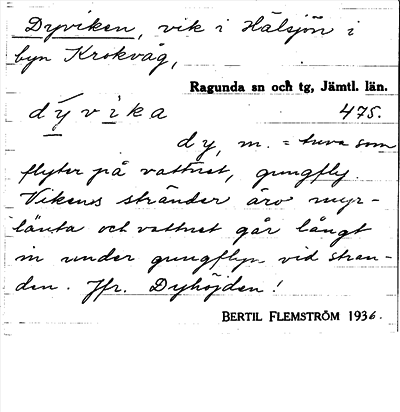 Dyviken, vik i Hälsjön i
byn Krokvåg,
Ragunda sn och tg, Jämtl. län.
dývika 475.
dy, m. = tuva som
flyter på vattnet, gungfly.
Vikens stränder äro myr-
länta och vattnet går långt
in under gungflyn vid stran-
den. Jfr. Dyhöjden!
BERTIL FLEMSTRÖM 1936.